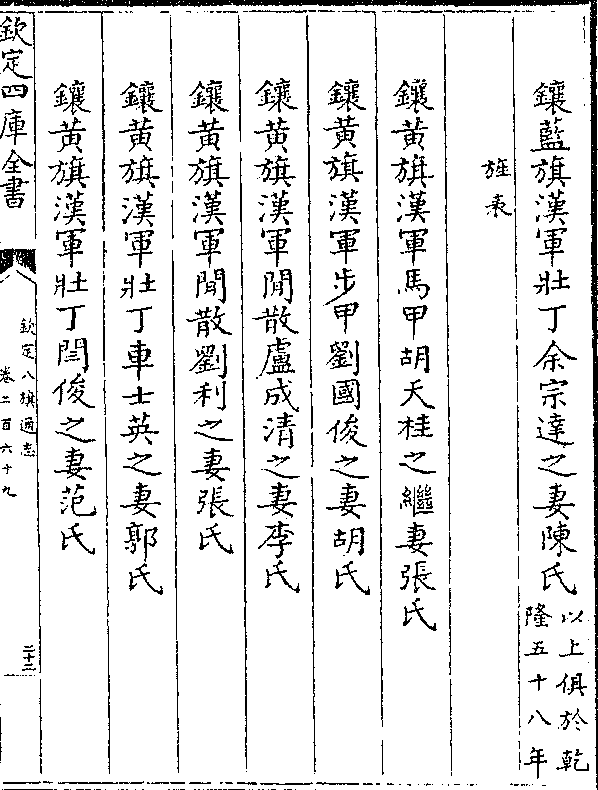 鑲藍旗漢軍壯丁余宗達之妻陳氏以上俱於乾隆五十八年
旌表
鑲黃旗漢軍馬甲胡天桂之繼妻張氏
鑲黃旗漢軍步甲劉國俊之妻胡氏
鑲黃旗漢軍閒散盧成清之妻李氏
鑲黃旗漢軍閒散劉利之妻張氏
鑲黃旗漢軍壯丁車士英之妻郭氏
鑲黃旗漢軍壯丁閆俊之妻范氏
欽定四庫全書
欽定八旗通志
卷二百六十九
二十二